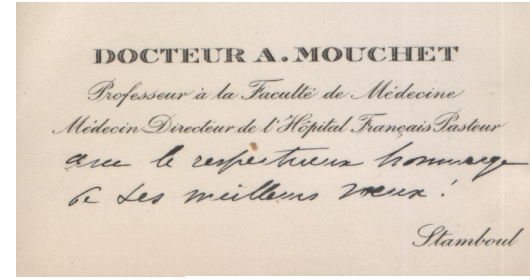 DOCTEUR A. MOUCHET
Professeur à la Faculté de Médecine
Médecin Directeur de l'Hôpital Français Pasteur
avec le respectueux hommage
de ses meilleurs vœux !
Stamboul